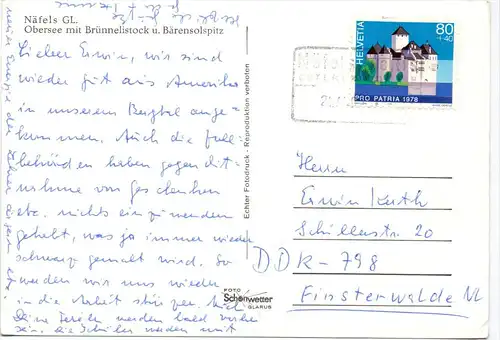 Näfels GL.
Obersee mit Brünnelistock u. Bärensolspitz
Lieber Erwin, wir sind
wieder gut aus Amerika
in unserem Bergtal ange-
kommen. Auch die Zoll-
behörden haben gegen Mit-
nahme von Geschenken
etc. nichts einzuwenden
gehabt, was ja immer wieder
schwarz gemalt wird. So
werden wir uns wieder
in die Arbeit stürzen.
Deine Ferien werden bald vorbei
sein. Die Schüler werden mit
Echter Fotodruck - Reproduktion verboten
FOTO
Schönwetter
GLARUS
HELVETIA
80
+40
PRO PATRIA 1978
Näfels
Herrn
Erwin Kuth
Schillerstr. 20
DDR-798
Finsterwalde NL